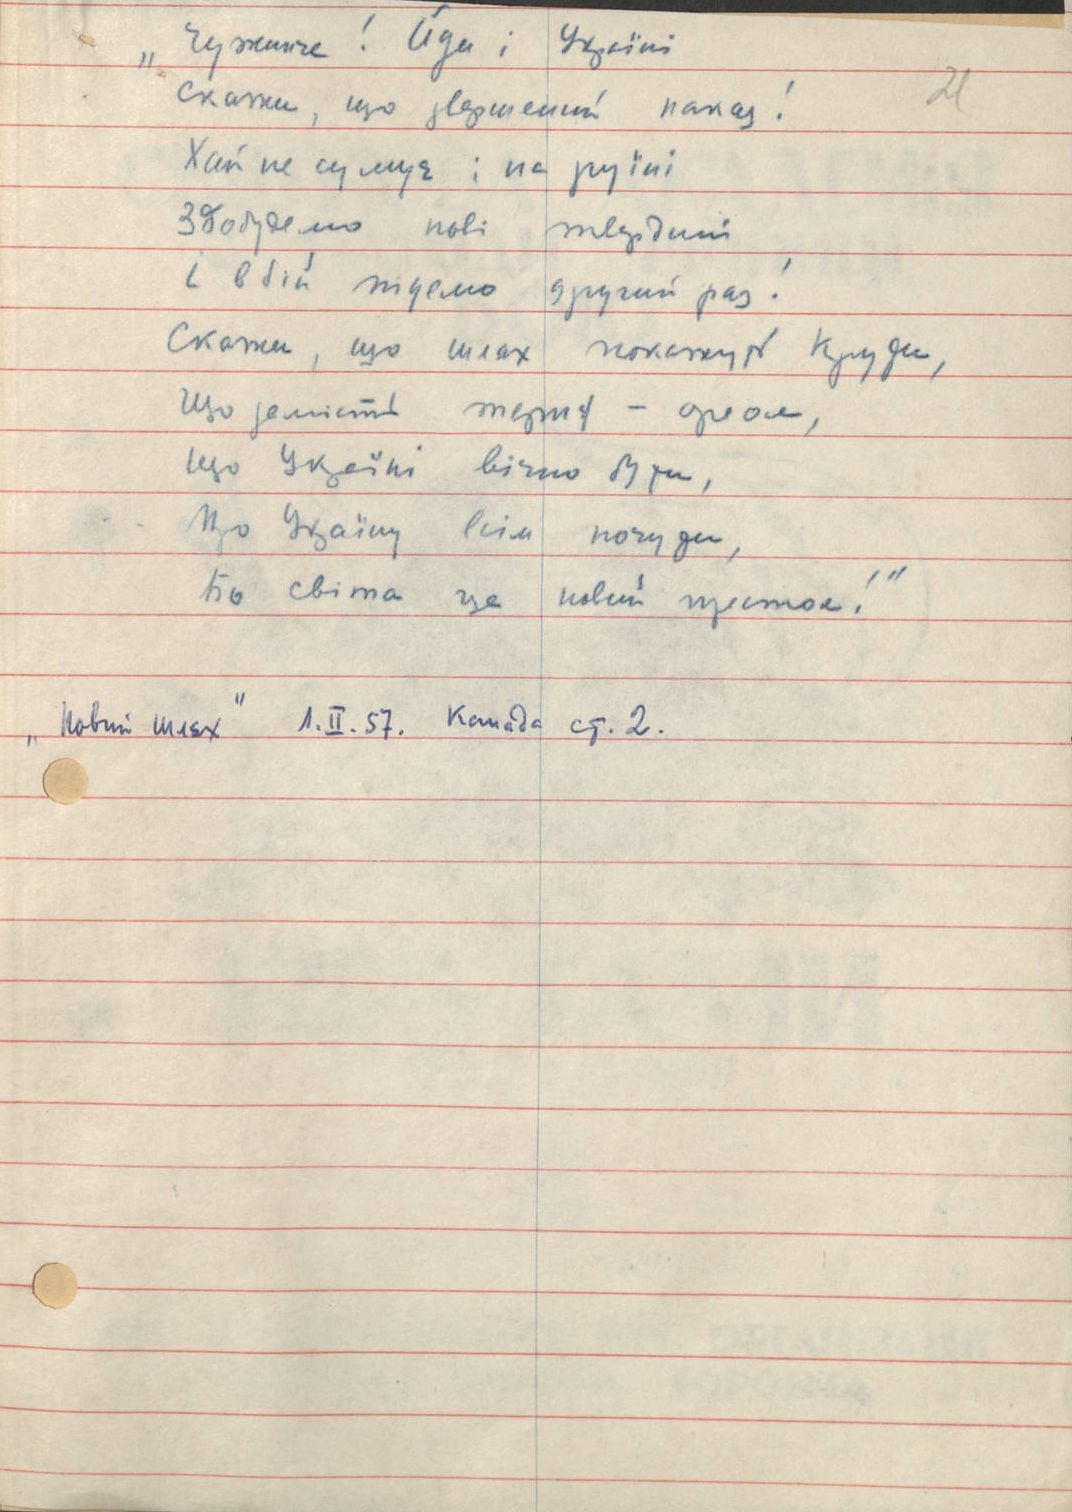 „Чужинче! Йди і Україні
Скажи, що звершений наказ!
Хай не сумує і на руїні
Здобудемо нові твердині
І в бій ждемо другий раз!
Скажи, що шлях покажуть Крути,
Що замість терня – ореол,
Що Україні вічно бути,
Що Україну всім почути,
Бо світа це новий престол!"
„Новий шлях" 1.II.57. Канада ст. 2.
21